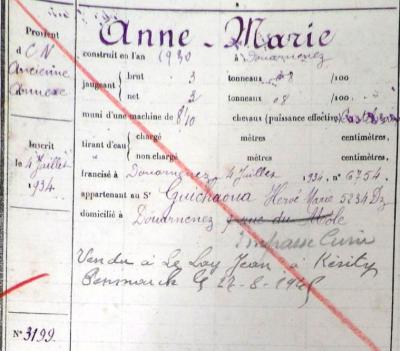 Provient
d CN
Ancienne
Annexe
Inscrit
le 4 Juillet
1934
N° 3199
Anne-Marie
construit en l'an 1930 à Douarnenez
jaugeant brut 3 tonneaux 08 /100
net 3 tonneaux 08 /100
muni d'une machine de 8/10 chevaux (puissance effective)
tirant d'eau chargé mètres centimètres.
non chargé mètres centimètres.
francisé à Douarnenez 4 Juillet 1934, n° 6754
appartenant au Sr Guichaoua Hervé Marie 5234 Dz
domicilié à Douarnenez rue du Môle
Impasse Curie
Vendu à Le Lay Jean à Kérity
Penmarch le 22-8-1945